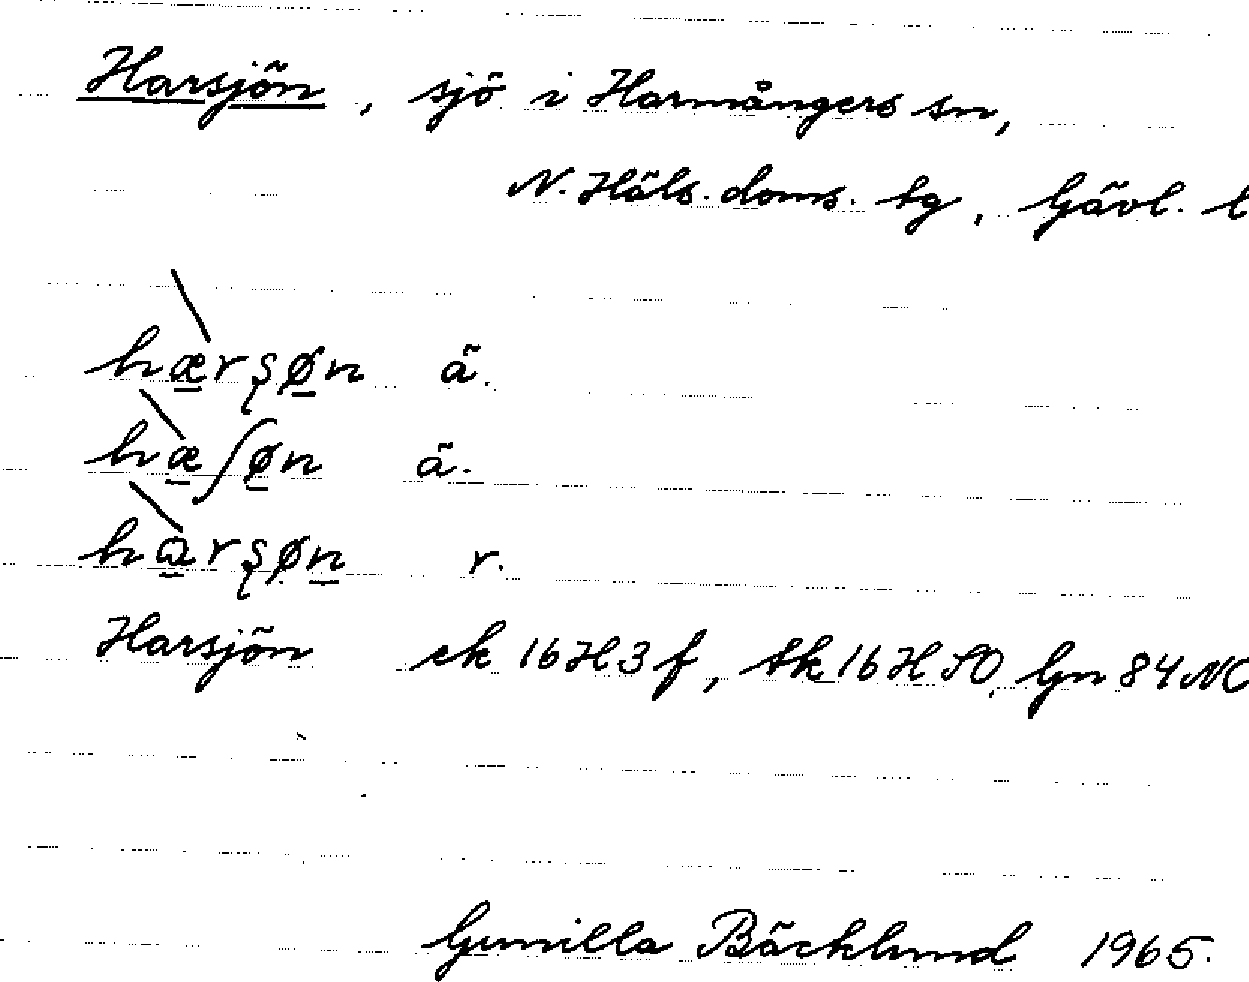 Harsjön, sjö i Harmångers sn,
N. Häls. doms. tg, Gävl. l
hærʂøn ä.
hæʃøn ä.
hɑrʂøn r.
Harsjön ek 16H3f, tk 16H SO, Gn 84 NO
Gunilla Bäcklund 1965.